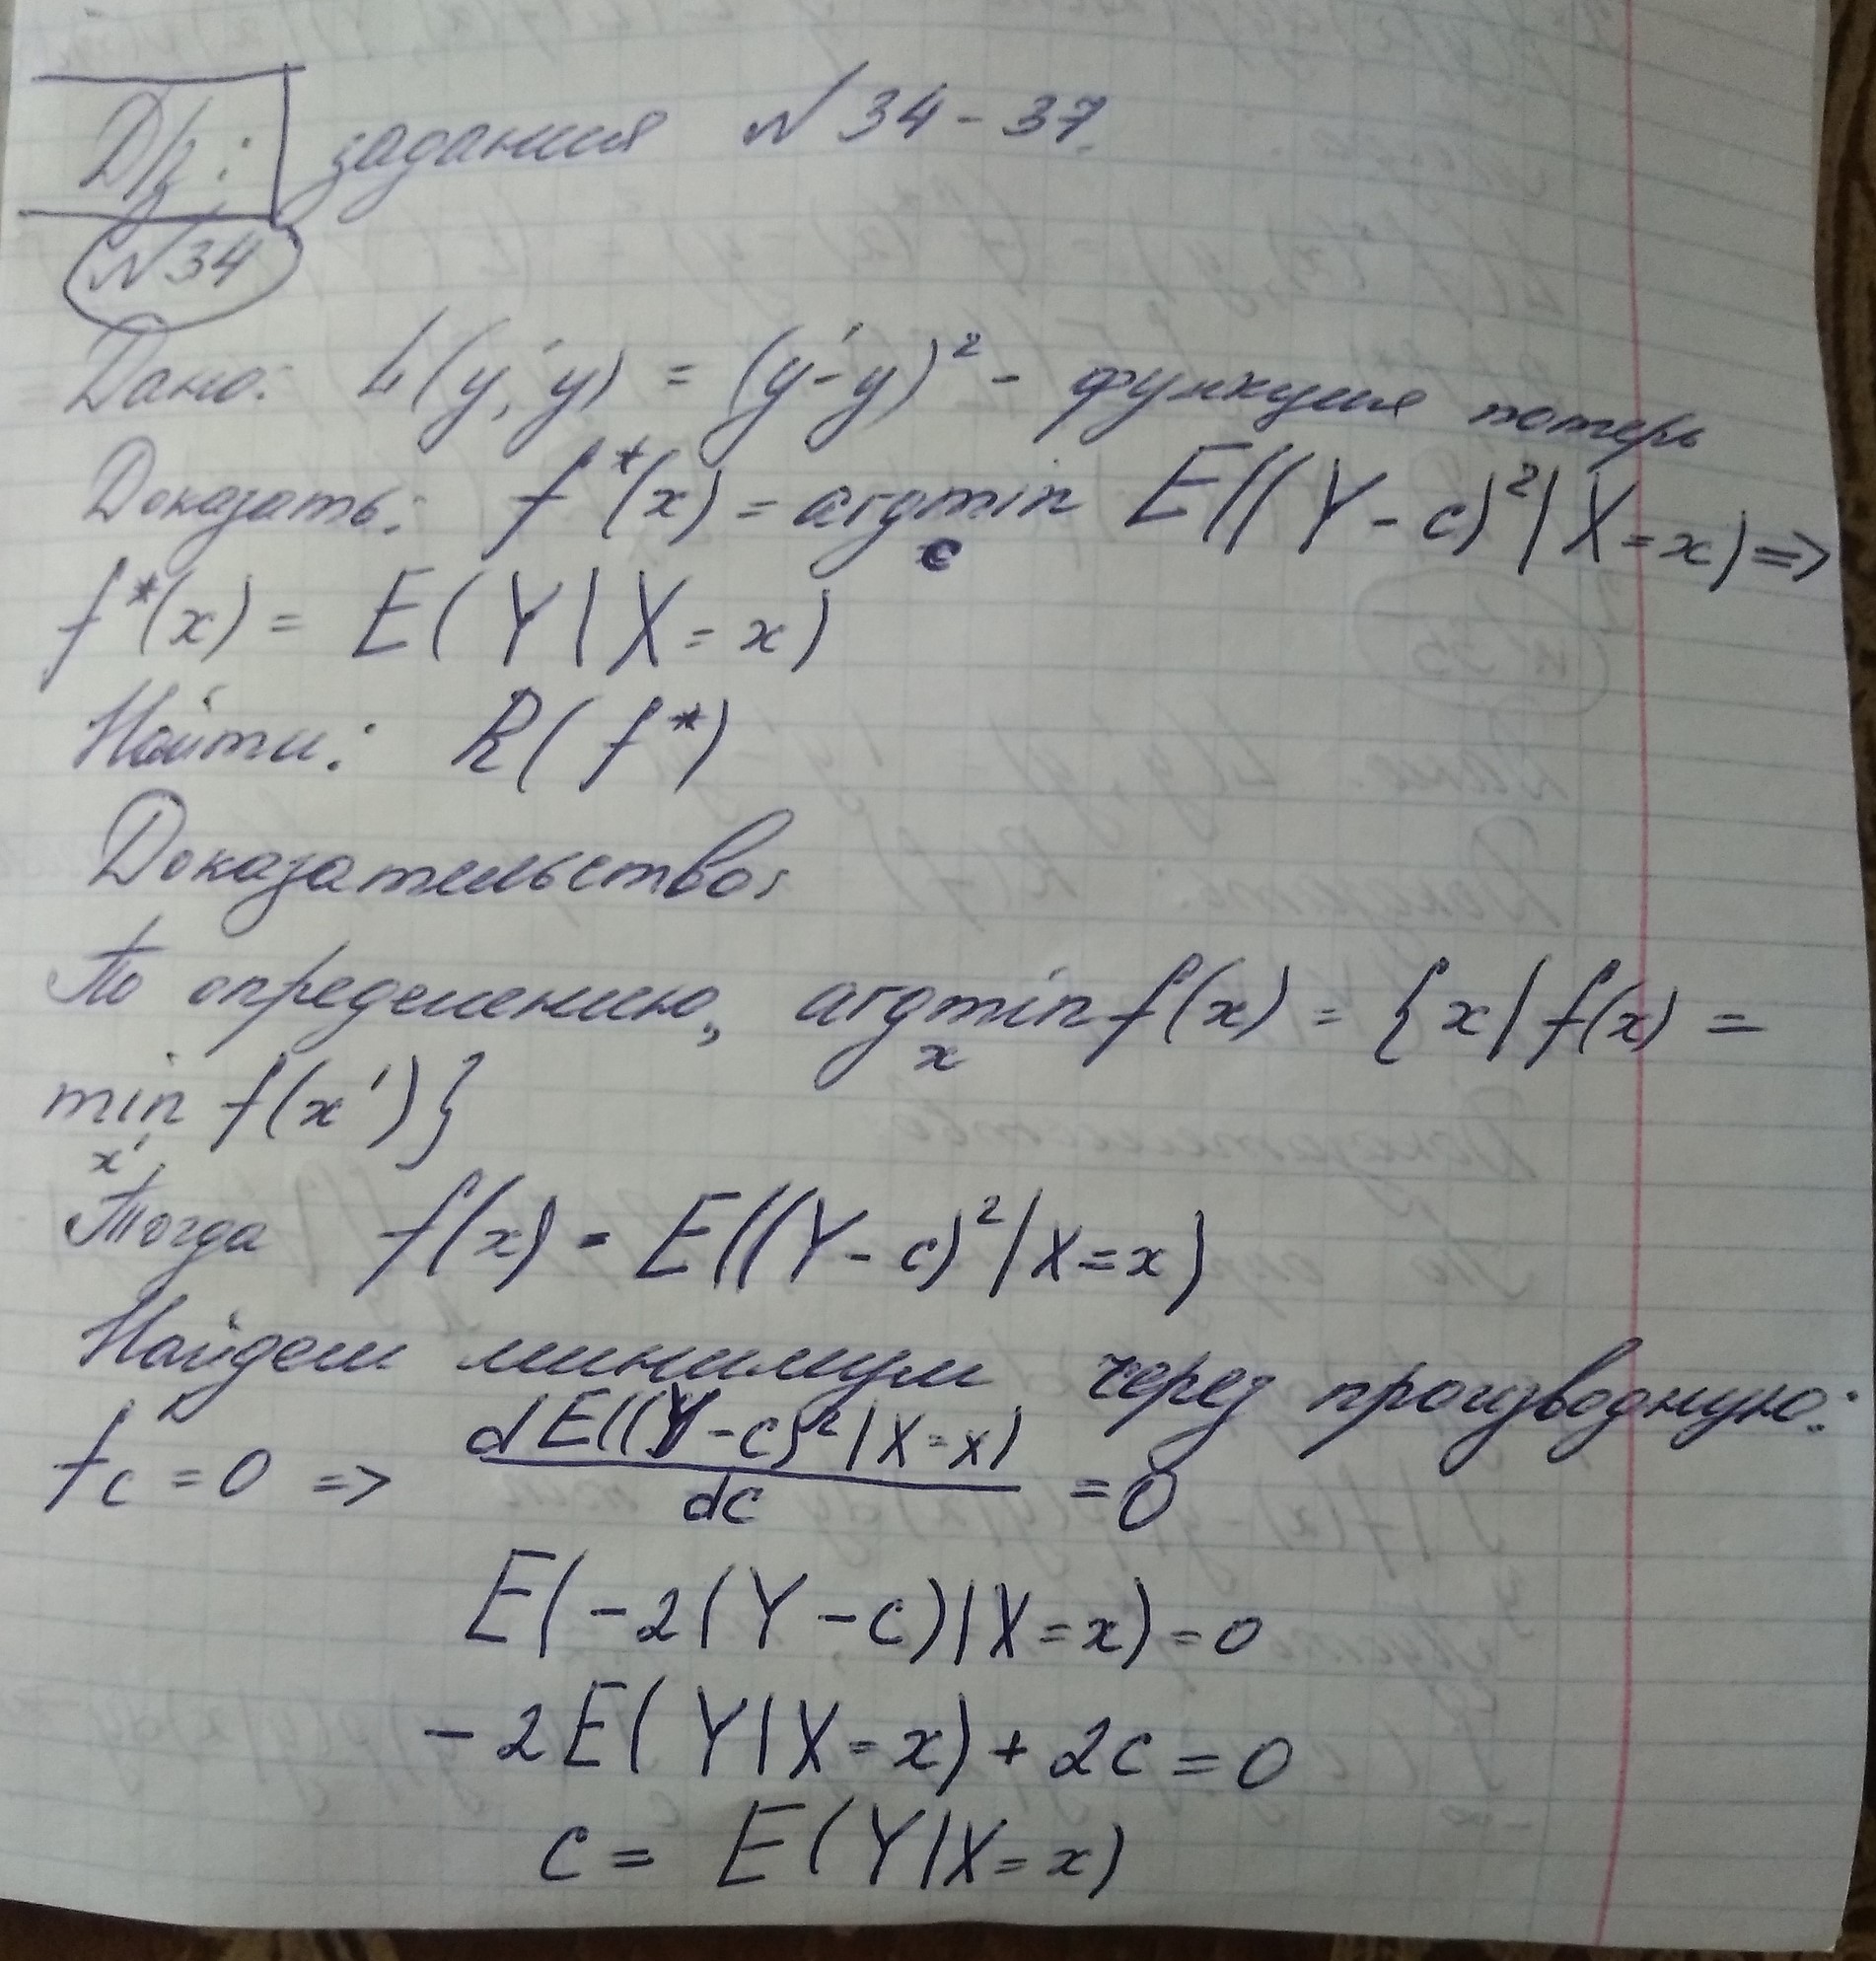 Д/з: задания №34-37.
№34
Дано: L(y', y) = (y'-y)² - функция потерь
Доказать: f*(x) = argmin E((Y-c)²|X=x) =>
c
f*(x) = E(Y|X=x)
Найти: R(f*)
Доказательство:
По определению, argmin f(x) = {x|f(x) =
x
min f(x')}
x'
Тогда f(x) = E((Y-c)²|X=x)
Найдем минимум через производную:
f'c = 0 => dE((Y-c)²|X=x)/dc = 0
E(-2(Y-c)|X=x)=0
-2E(Y|X=x)+2c=0
c = E(Y|X=x)